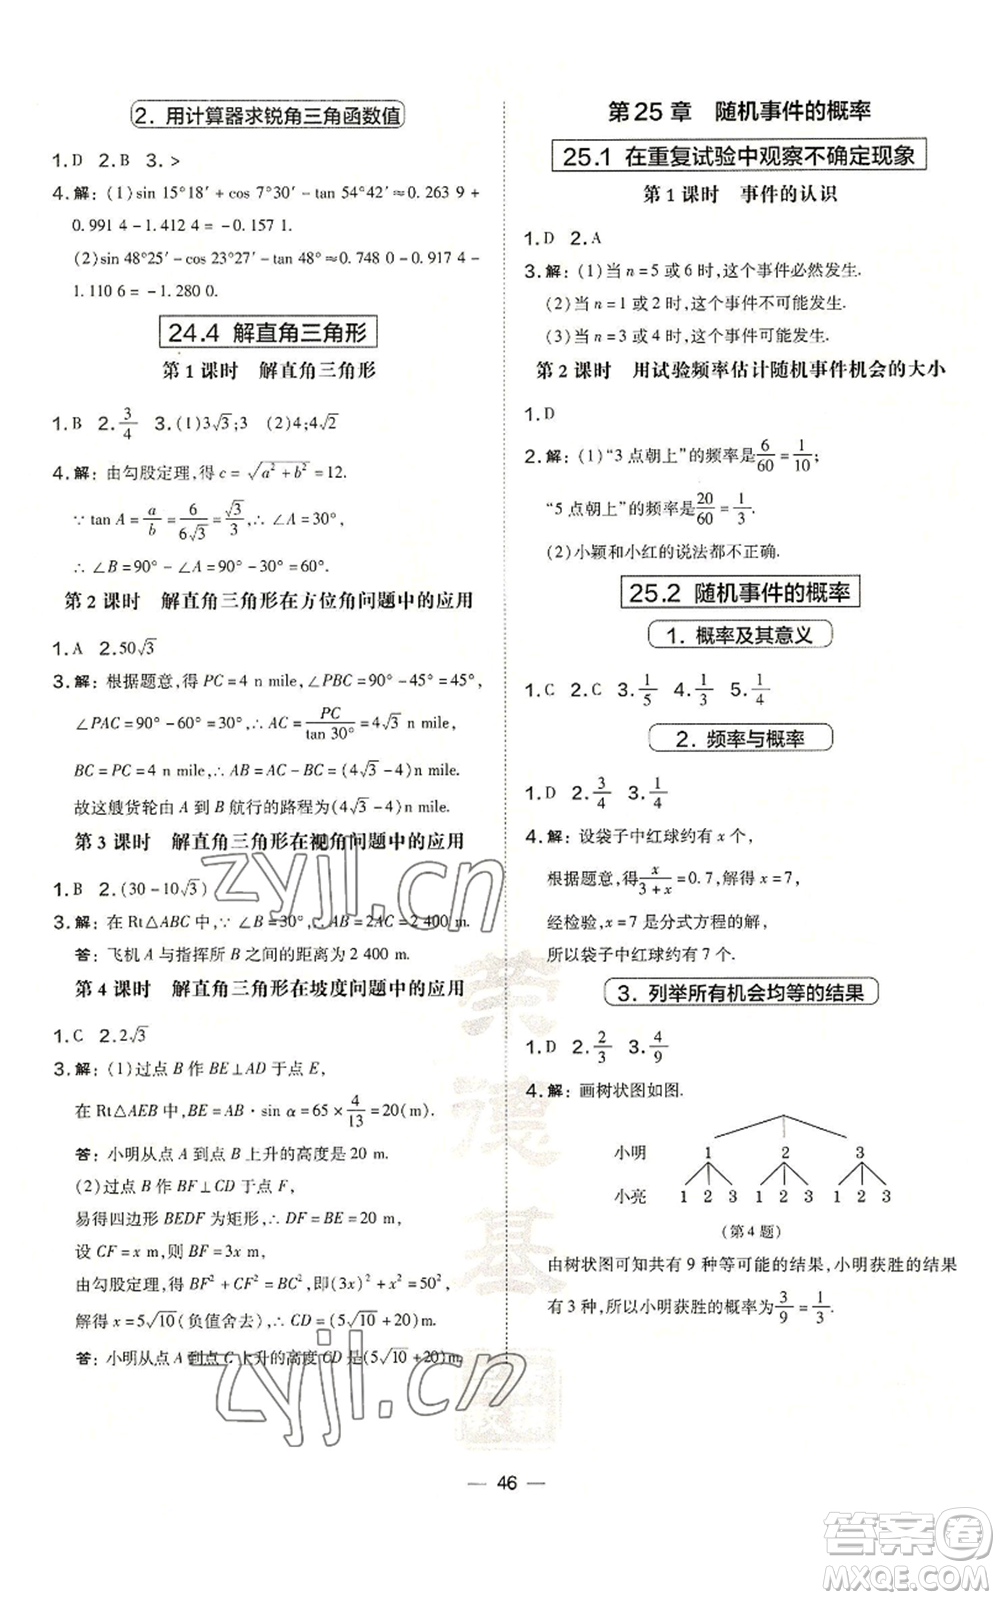 2. 用计算器求锐角三角函数值
1. D 2. B 3. >
4. 解: (1) sin 15°18′ + cos 7°30′ − tan 54°42′ ≈ 0.263 9 +
0.991 4 − 1.412 4 = −0.157 1.
(2) sin 48°25′ − cos 23°27′ − tan 48° ≈ 0.748 0 − 0.917 4 −
1.110 6 = −1.280 0.
24.4 解直角三角形
第 1 课时 解直角三角形
1. B 2. 3/4 3. (1) 3√3; 3 (2) 4; 4√3
4. 解: 由勾股定理, 得 c = √(a² + b²) = 12.
∵ tan A = a/b = 6/(6√3) = √3/3, ∴ ∠A = 30°,
∴ ∠B = 90° − ∠A = 90° − 30° = 60°.
第 2 课时 解直角三角形在方位角问题中的应用
1. A 2. 50√3
3. 解: 根据题意, 得 PC = 4 n mile, ∠PBC = 90° − 45° = 45°,
∠PAC = 90° − 60° = 30°, ∴ AC = PC/tan 30° = 4√3 n mile,
BC = PC = 4 n mile, ∴ AB = AC − BC = (4√3 − 4) n mile.
故这艘货轮由 A 到 B 航行的路程为 (4√3 − 4) n mile.
第 3 课时 解直角三角形在视角问题中的应用
1. B 2. (30 − 10√3)
3. 解: 在 Rt△ABC 中, ∵ ∠B = 30°, ∴ AB = 2AC = 2 400 m.
答: 飞机 A 与指挥所 B 之间的距离为 2 400 m.
第 4 课时 解直角三角形在坡度问题中的应用
1. C 2. 2√3
3. 解: (1) 过点 B 作 BE⊥AD 于点 E,
在 Rt△AEB 中, BE = AB · sin α = 65 × 4/13 = 20(m).
答: 小明从点 A 到点 B 上升的高度是 20 m.
(2) 过点 B 作 BF⊥CD 于点 F,
易得四边形 BEDF 为矩形, ∴ DF = BE = 20 m,
设 CF = x m, 则 BF = 3x m,
由勾股定理, 得 BF² + CF² = BC², 即 (3x)² + x² = 50²,
解得 x = 5√10 (负值舍去), ∴ CD = (5√10 + 20) m.
答: 小明从点 A 到点 C 上升的高度 CD 是 (5√10 + 20) m.
第 25 章 随机事件的概率
25.1 在重复试验中观察不确定现象
第 1 课时 事件的认识
1. D 2. A
3. 解: (1) 当 n = 5 或 6 时, 这个事件必然发生.
(2) 当 n = 1 或 2 时, 这个事件不可能发生.
(3) 当 n = 3 或 4 时, 这个事件可能发生.
第 2 课时 用试验频率估计随机事件机会的大小
1. D
2. 解: (1) “3 点朝上” 的频率是 6/60 = 1/10;
“5 点朝上” 的频率是 20/60 = 1/3.
(2) 小颖和小红的说法都不正确.
25.2 随机事件的概率
1. 概率及其意义
1. C 2. C 3. 1/5 4. 1/3 5. 1/4
2. 频率与概率
1. D 2. 3/4 3. 1/4
4. 解: 设袋子中红球约有 x 个,
根据题意, 得 x/(3 + x) = 0.7, 解得 x = 7,
经检验, x = 7 是分式方程的解,
所以袋子中红球约有 7 个.
3. 列举所有机会均等的结果
1. D 2. 2/3 3. 4/9
4. 解: 画树状图如图.
小明 1 2 3
小亮 1 2 3 1 2 3 1 2 3
(第 4 题)
由树状图可知共有 9 种等可能的结果, 小明获胜的结果
有 3 种, 所以小明获胜的概率为 3/9 = 1/3.
— 46 —
zyjl.cn
zyjl.cn
荣德基
答案圈
MXQE.COM